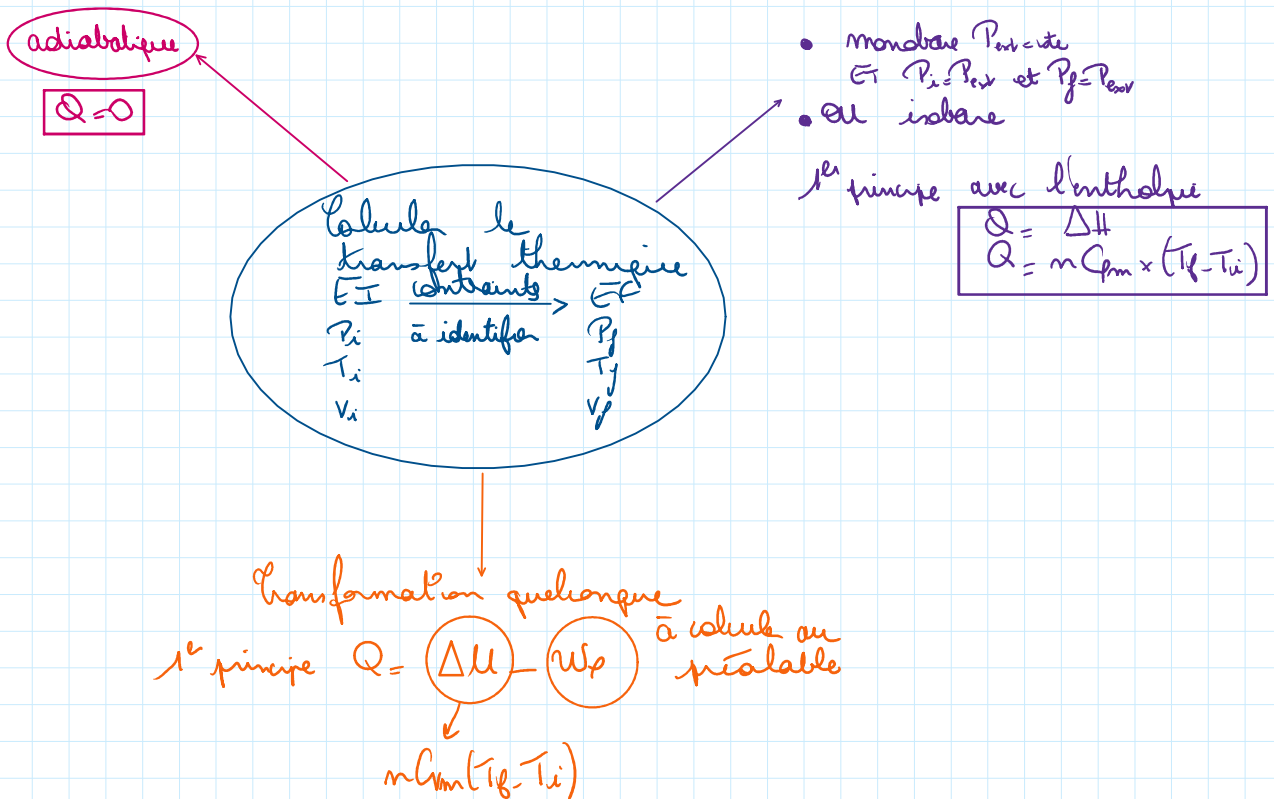 adiabatique
Q=0
• monobare Pext=cte
ET Pi=Pext et Pf=Pext
• OU isobare
1er principe avec l'enthalpie
Q = ΔH
Q = nCpm × (Tf-Ti)
Calculer le
transfert thermique
EI contraintes EF
à identifier
Pi Pf
Ti Tf
Vi Vf
Transformation quelconque
1er principe Q = ΔU - Wp à calculer au
préalable
nCvm(Tf-Ti)